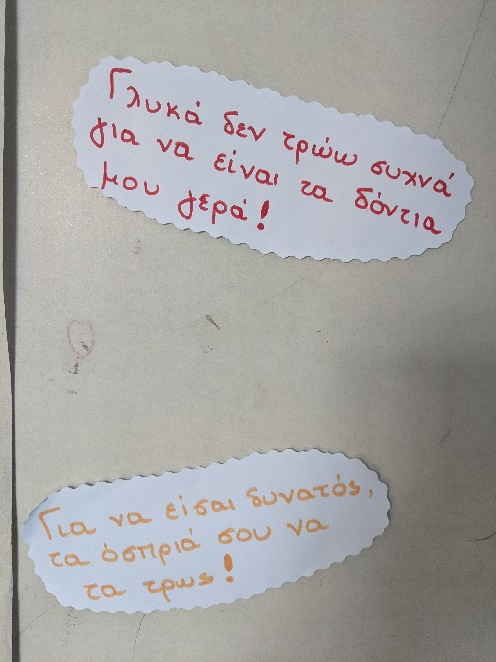 Γλυκά δεν τρώω συχνά
για να είναι τα δόντια
μου γερά!
Για να είσαι δυνατός,
τα όσπριά σου να
τα τρως!